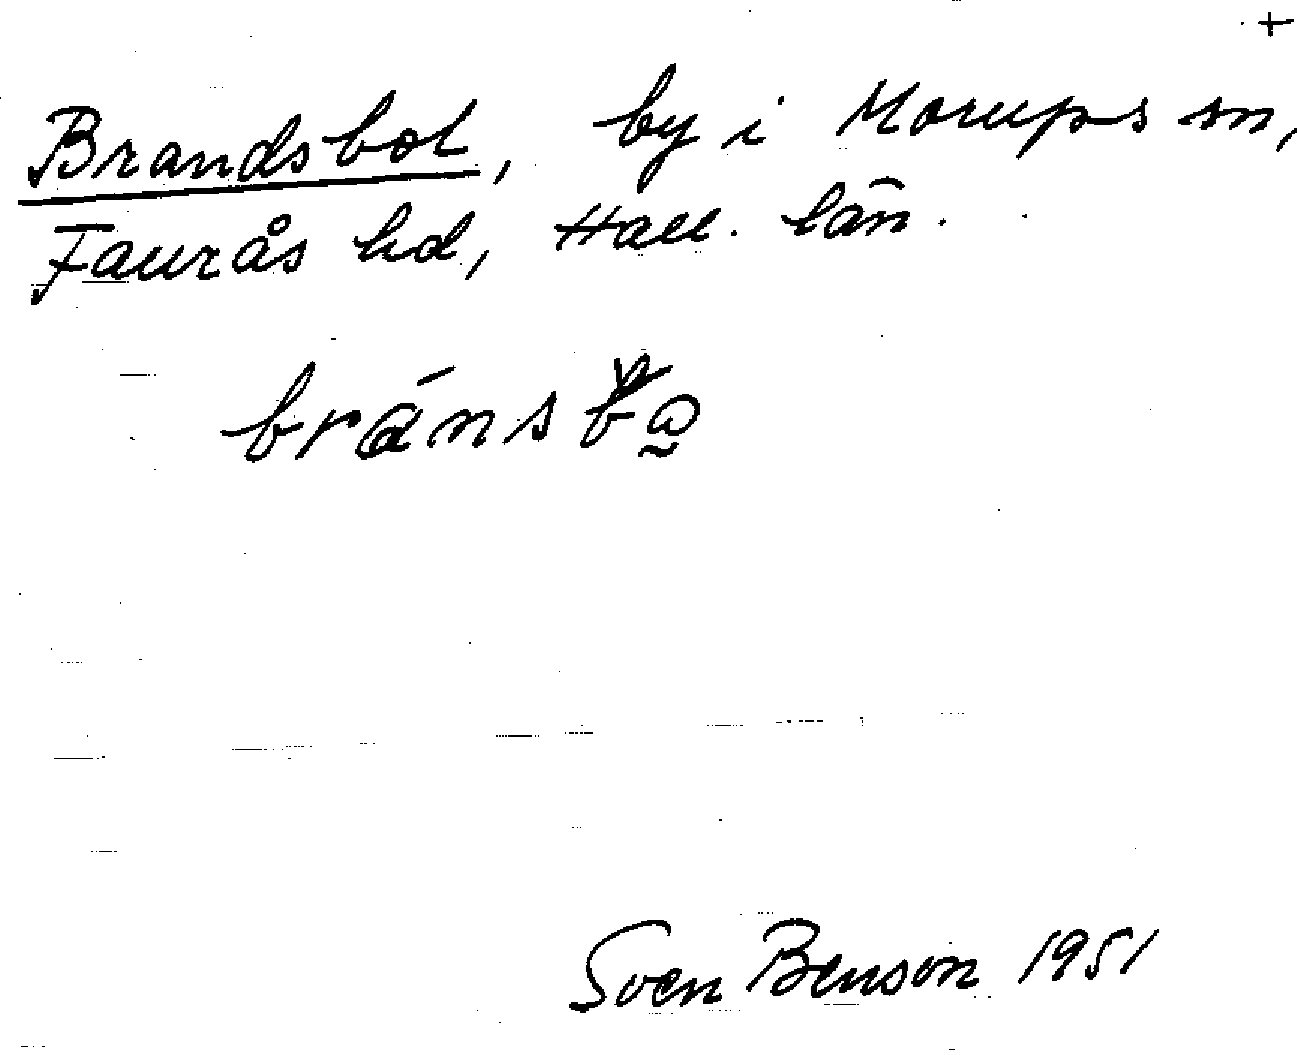 +
Brandsbol, by i Morups sn,
Faurås hd, Hall. län.
Sven Benson 1951